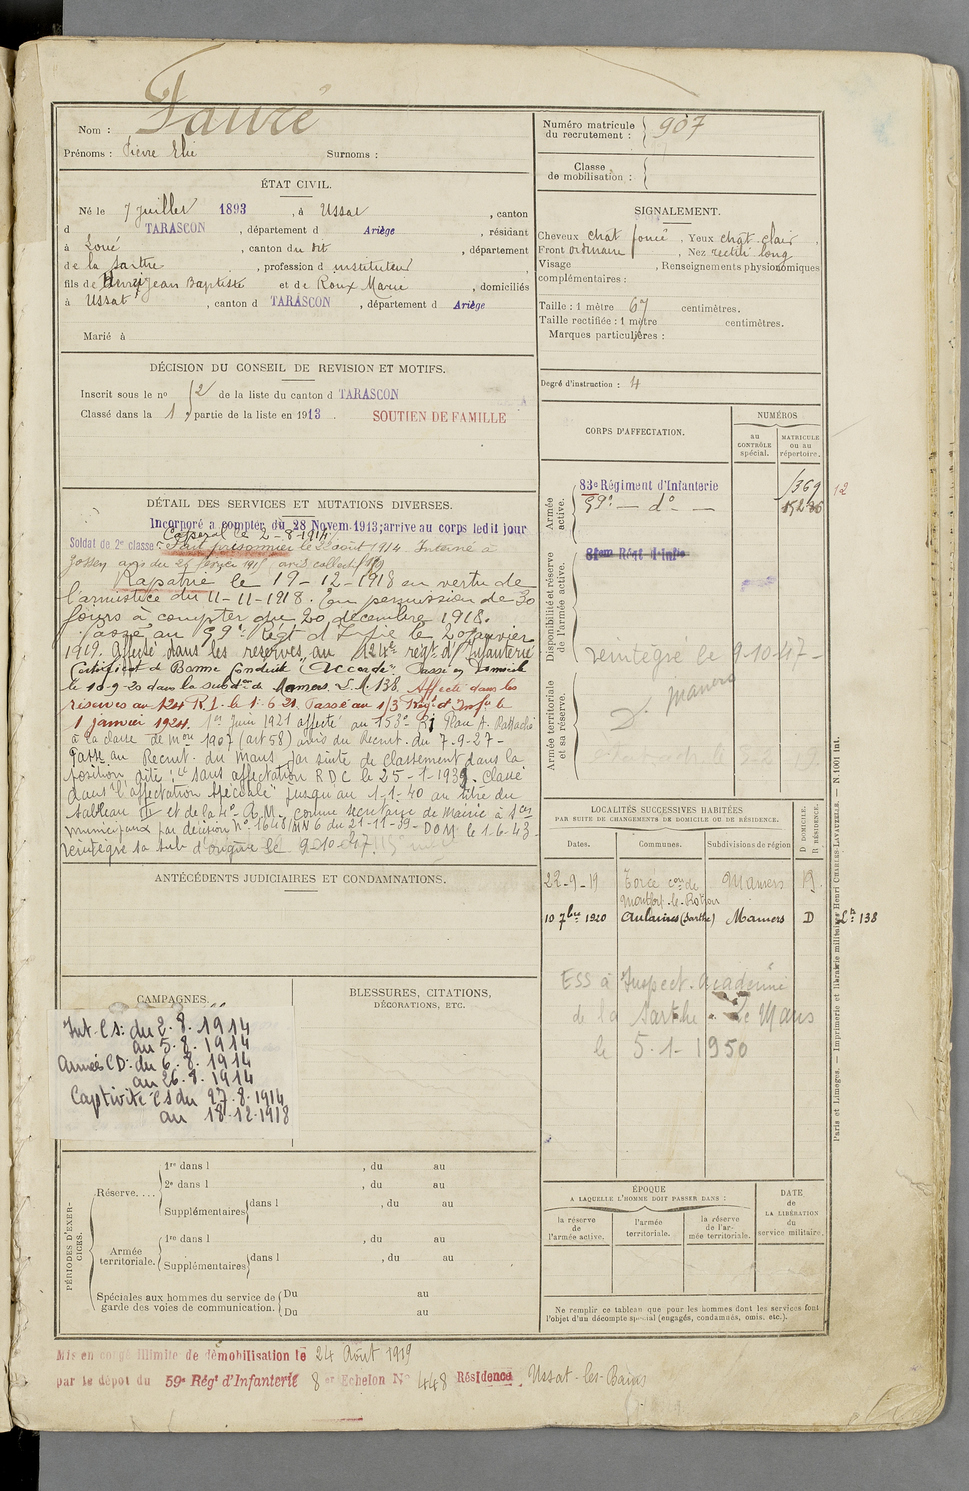 Nom : Fauré
Prénoms : Pierre Elie Surnoms :
ÉTAT CIVIL.
Né le 7 juillet 1893, à Ussat, canton
d TARASCON, département d Ariège, résidant
à Loué, canton du dit, département
de la Sarthe, profession d instituteur,
fils de Jean Baptiste et de Roux Marie, domiciliés
à Ussat, canton d TARASCON, département d Ariège
Marié à
DÉCISION DU CONSEIL DE REVISION ET MOTIFS.
Inscrit sous le no 12 de la liste du canton d TARASCON
Classé dans la 1re partie de la liste en 1913. SOUTIEN DE FAMILLE
DÉTAIL DES SERVICES ET MUTATIONS DIVERSES.
Incorporé a compter du 28 Novem. 1913; arrive au corps ledit jour
Soldat de 2e classe. Caporal le 2-8-1914
Fait prisonnier le 26 août 1914 Interné à
Zossen avis du 26 février 1915 avis collectif
Rapatrié le 19-12-1918 en vertu de
l'armistice du 11-11-1918. En permission de 30
jours à compter du 20 décembre 1918.
Passé au 59e Régt d'Infie le 20 janvier
1919. Affecté dans les réserves au 124e régt d'Infanterie
Certificat de Bonne Conduite "Accordé" Passé en Domicile
le 10-9-20 dans la subdon de Mamers. L. M. 138. Affecté dans les
réserves au 124 R.I. le 1-6-21. Passé au 113e Régt d'Infie le
1 janvier 1924. 1er Juin 1921 affecté au 153e RI Plan A. Rattaché
à la classe de mon 1907 (art 58) avis du Recrut. du 7-9-27-
Passé au Recrut. du Mans par suite de classement dans la
position dite "sans affectation" R D C le 25-1-1939. Classé
dans "l'affectation spéciale" jusqu'au 1-1-40 au titre du
tableau III et de la 4e R.M. comme secrétaire de Mairie à
municipaux par décision no 1648/MN6 du 21-11-39- DOM le 1-6-43-
réintégré sa sub d'origine le 9-10-47.
ANTÉCÉDENTS JUDICIAIRES ET CONDAMNATIONS.
CAMPAGNES.
Int. CS: du 2.8.1914
au 5.8.1914
Armées CD. du 6.8.1914
au 26.8.1914
Captivité CS du 27.8.1914
au 18.12.1918
BLESSURES, CITATIONS,
DÉCORATIONS, ETC.
PÉRIODES D'EXERCICES.
Réserve....
1re dans l , du au
2e dans l , du au
Supplémentaires dans l , du au
Armée territoriale.
1re dans l , du au
Supplémentaires dans l , du au
Spéciales aux hommes du service de garde des voies de communication.
Du au
Du au
Numéro matricule du recrutement : 907
Classe de mobilisation :
SIGNALEMENT.
Cheveux chat foncé, Yeux chat. clair,
Front ordinaire, Nez rectili long
Visage , Renseignements physionomiques
complémentaires :
Taille : 1 mètre 67 centimètres.
Taille rectifiée : 1 mètre centimètres.
Marques particulières :
Degré d'instruction : 4
CORPS D'AFFECTATION.
NUMÉROS
au CONTRÔLE spécial.
MATRICULE ou au répertoire.
Armée active.
83e Régiment d'Infanterie 1369 12
59e — do —
Disponibilité et réserve de l'armée active.
81eme Régt d'Infie
réintégré le 9-10-47-
Armée territoriale et sa réserve.
D. Mamers
LOCALITÉS SUCCESSIVES HABITÉES
PAR SUITE DE CHANGEMENTS DE DOMICILE OU DE RÉSIDENCE.
Dates. Communes. Subdivisions de région
D DOMICILE.
R RÉSIDENCE.
22-9-19 Torcé con de Montfort-le-Rotrou Mamers R.
10 7bre 1920 Aulaines (Sarthe) Mamers D Ltr 138
ESS à Inspect. Académie
de la Sarthe Le Mans
le 5.1-1950
ÉPOQUE
A LAQUELLE L'HOMME DOIT PASSER DANS :
la réserve de l'armée active.
l'armée territoriale.
la réserve de l'armée territoriale.
DATE de LA LIBÉRATION du service militaire.
Ne remplir ce tableau que pour les hommes dont les services font
l'objet d'un décompte spécial (engagés, condamnés, omis, etc.).
Paris et Limoges. — Imprimerie et librairie militaires Henri CHARLES-LAVAUZELLE. — N. 1001 int.
Mis en congé illimité de démobilisation le 24 Août 1919
par le dépôt du 59e Régt d'Infanterie 8 er Echelon No 448 Résidence Ussat-les-Bains